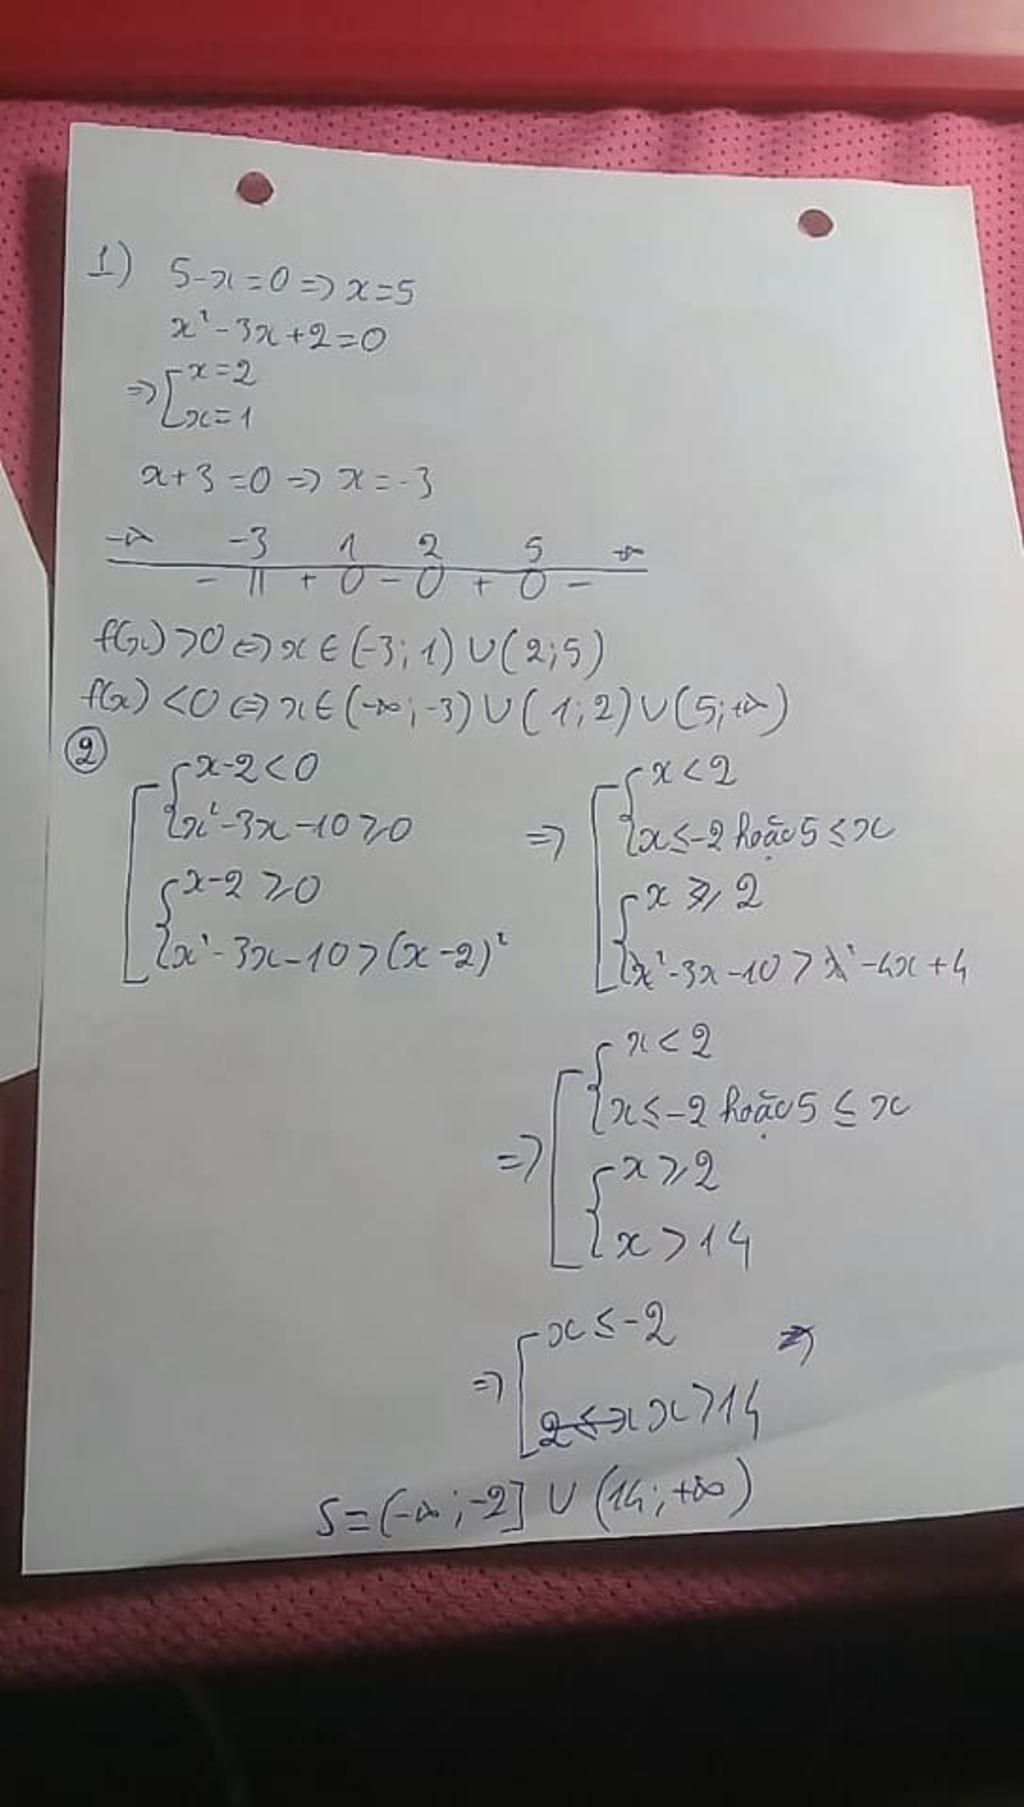 1) 5-x=0 => x=5
x²-3x+2=0
=> [ x=2
x=1
x+3=0 => x=-3
-∞ -3 1 2 5 +∞
- || + 0 - 0 + 0 -
f(x)>0 <=> x∈(-3;1)∪(2;5)
f(x)<0 <=> x∈(-∞;-3)∪(1;2)∪(5;+∞)
②
[ { x-2<0
x²-3x-10≥0
{ x-2≥0
x²-3x-10>(x-2)²
=> [ { x<2
x≤-2 hoặc 5≤x
{ x≥2
x²-3x-10>x²-4x+4
=> [ { x<2
x≤-2 hoặc 5≤x
{ x≥2
x>14
=> [ x≤-2 =>
2≤x x>14
S=(-∞;-2]∪(14;+∞)